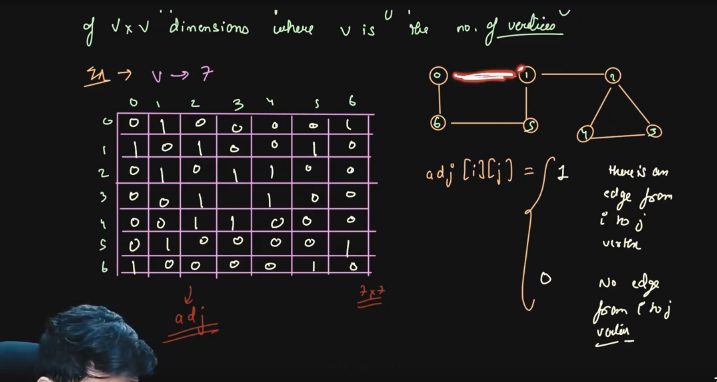 of V x V dimensions where V is the no. of vertices
Ex → V → 7
0 1 2 3 4 5 6
0 0 1 0 0 0 0 1
1 1 0 1 0 0 1 0
2 0 1 0 1 1 0 0
3 0 0 1 1 0 0
4 0 0 1 1 0 0 0
5 0 1 0 0 0 0 1
6 1 0 0 0 0 1 0
adj
7x7
0 1 2
6 5 4 3
adj [i][j] = 1 there is an
edge from
i to j
vertex
0 No edge
from i to j
vertex